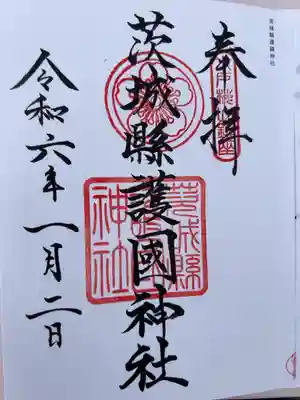 茨城縣護國神社
奉拝
茨城縣護國神社
令和六年一月二日
茨城縣護國神社